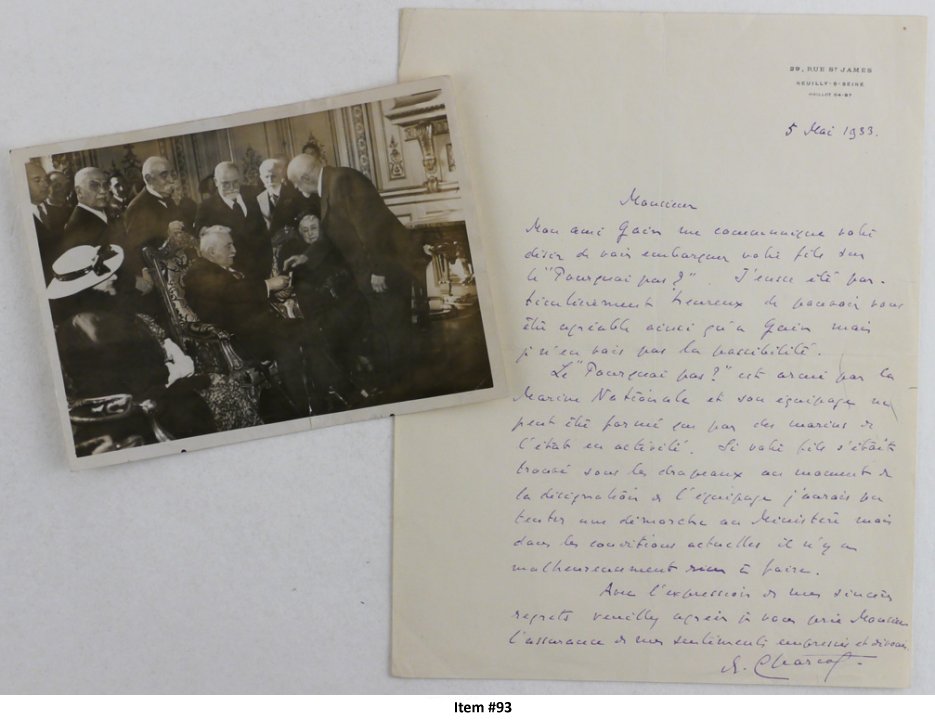 29, RUE ST JAMES
NEUILLY-S-SEINE
MAILLOT 04-97
5 Mai 1933.
Monsieur
Mon ami Gain me communique votre
désir de voir embarquer votre fils sur
le "Pourquoi pas?". J'eusse été par-
ticulièrement heureux de pouvoir vous
être agréable ainsi qu'à Gain mais
je n'en vois pas la possibilité.
Le "Pourquoi pas?" est armé par la
Marine Nationale et son équipage ne
peut être formé que par des marins de
l'état en activité. Si votre fils s'était
trouvé sous les drapeaux au moment de
la désignation de l'équipage j'aurais pu
tenter une démarche au Ministère mais
dans les conditions actuelles il n'y a
malheureusement rien à faire.
Avec l'expression de mes sincères
regrets veuillez agréer je vous prie Monsieur
l'assurance de mes sentiments empressés et dévoués
Charcot
Item #93